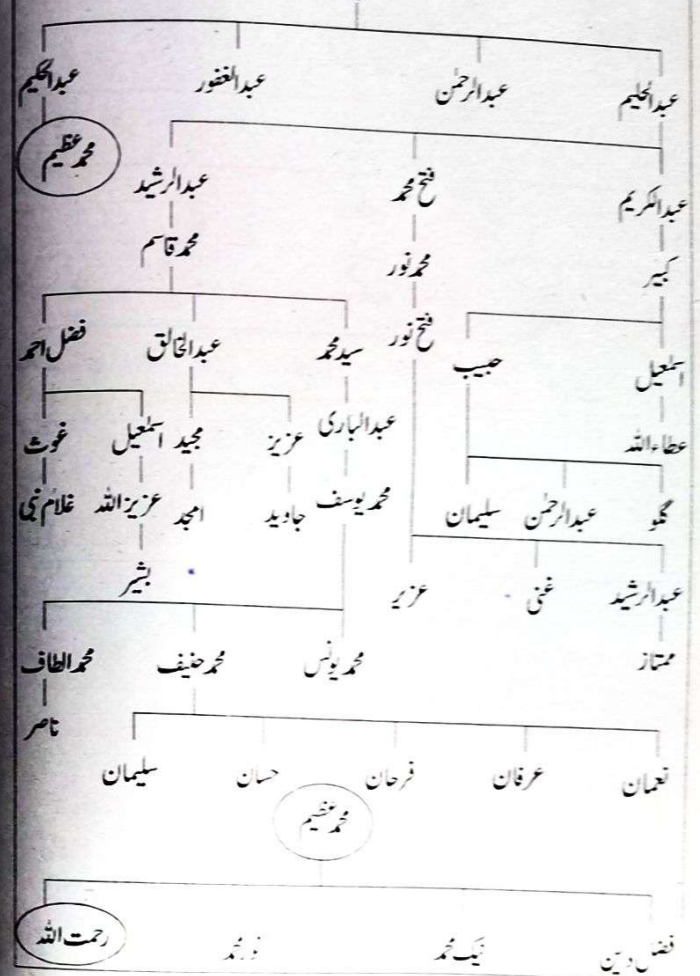 عبدالحلیم عبدالرحمٰن عبدالغفور عبدالحکیم
محمد عظیم
عبدالکریم فتح محمد عبدالرشید
کبیر محمد نور محمد قاسم
اسمٰعیل حبیب فتح نور سید محمد عبدالخالق فضل احمد
عطاءاللہ عبدالباری عزیز مجید اسمٰعیل غوث
گلو عبدالرحمٰن سلیمان محمد یوسف جاوید امجد عزیزاللہ غلام نبی
عبدالرشید غنی عزیر بشیر
ممتاز محمد یونس محمد حنیف محمد الطاف
ناصر
نعمان عرفان فرحان حسان سلیمان
محمد عظیم
فضل دین نیک محمد نور محمد رحمت اللہ